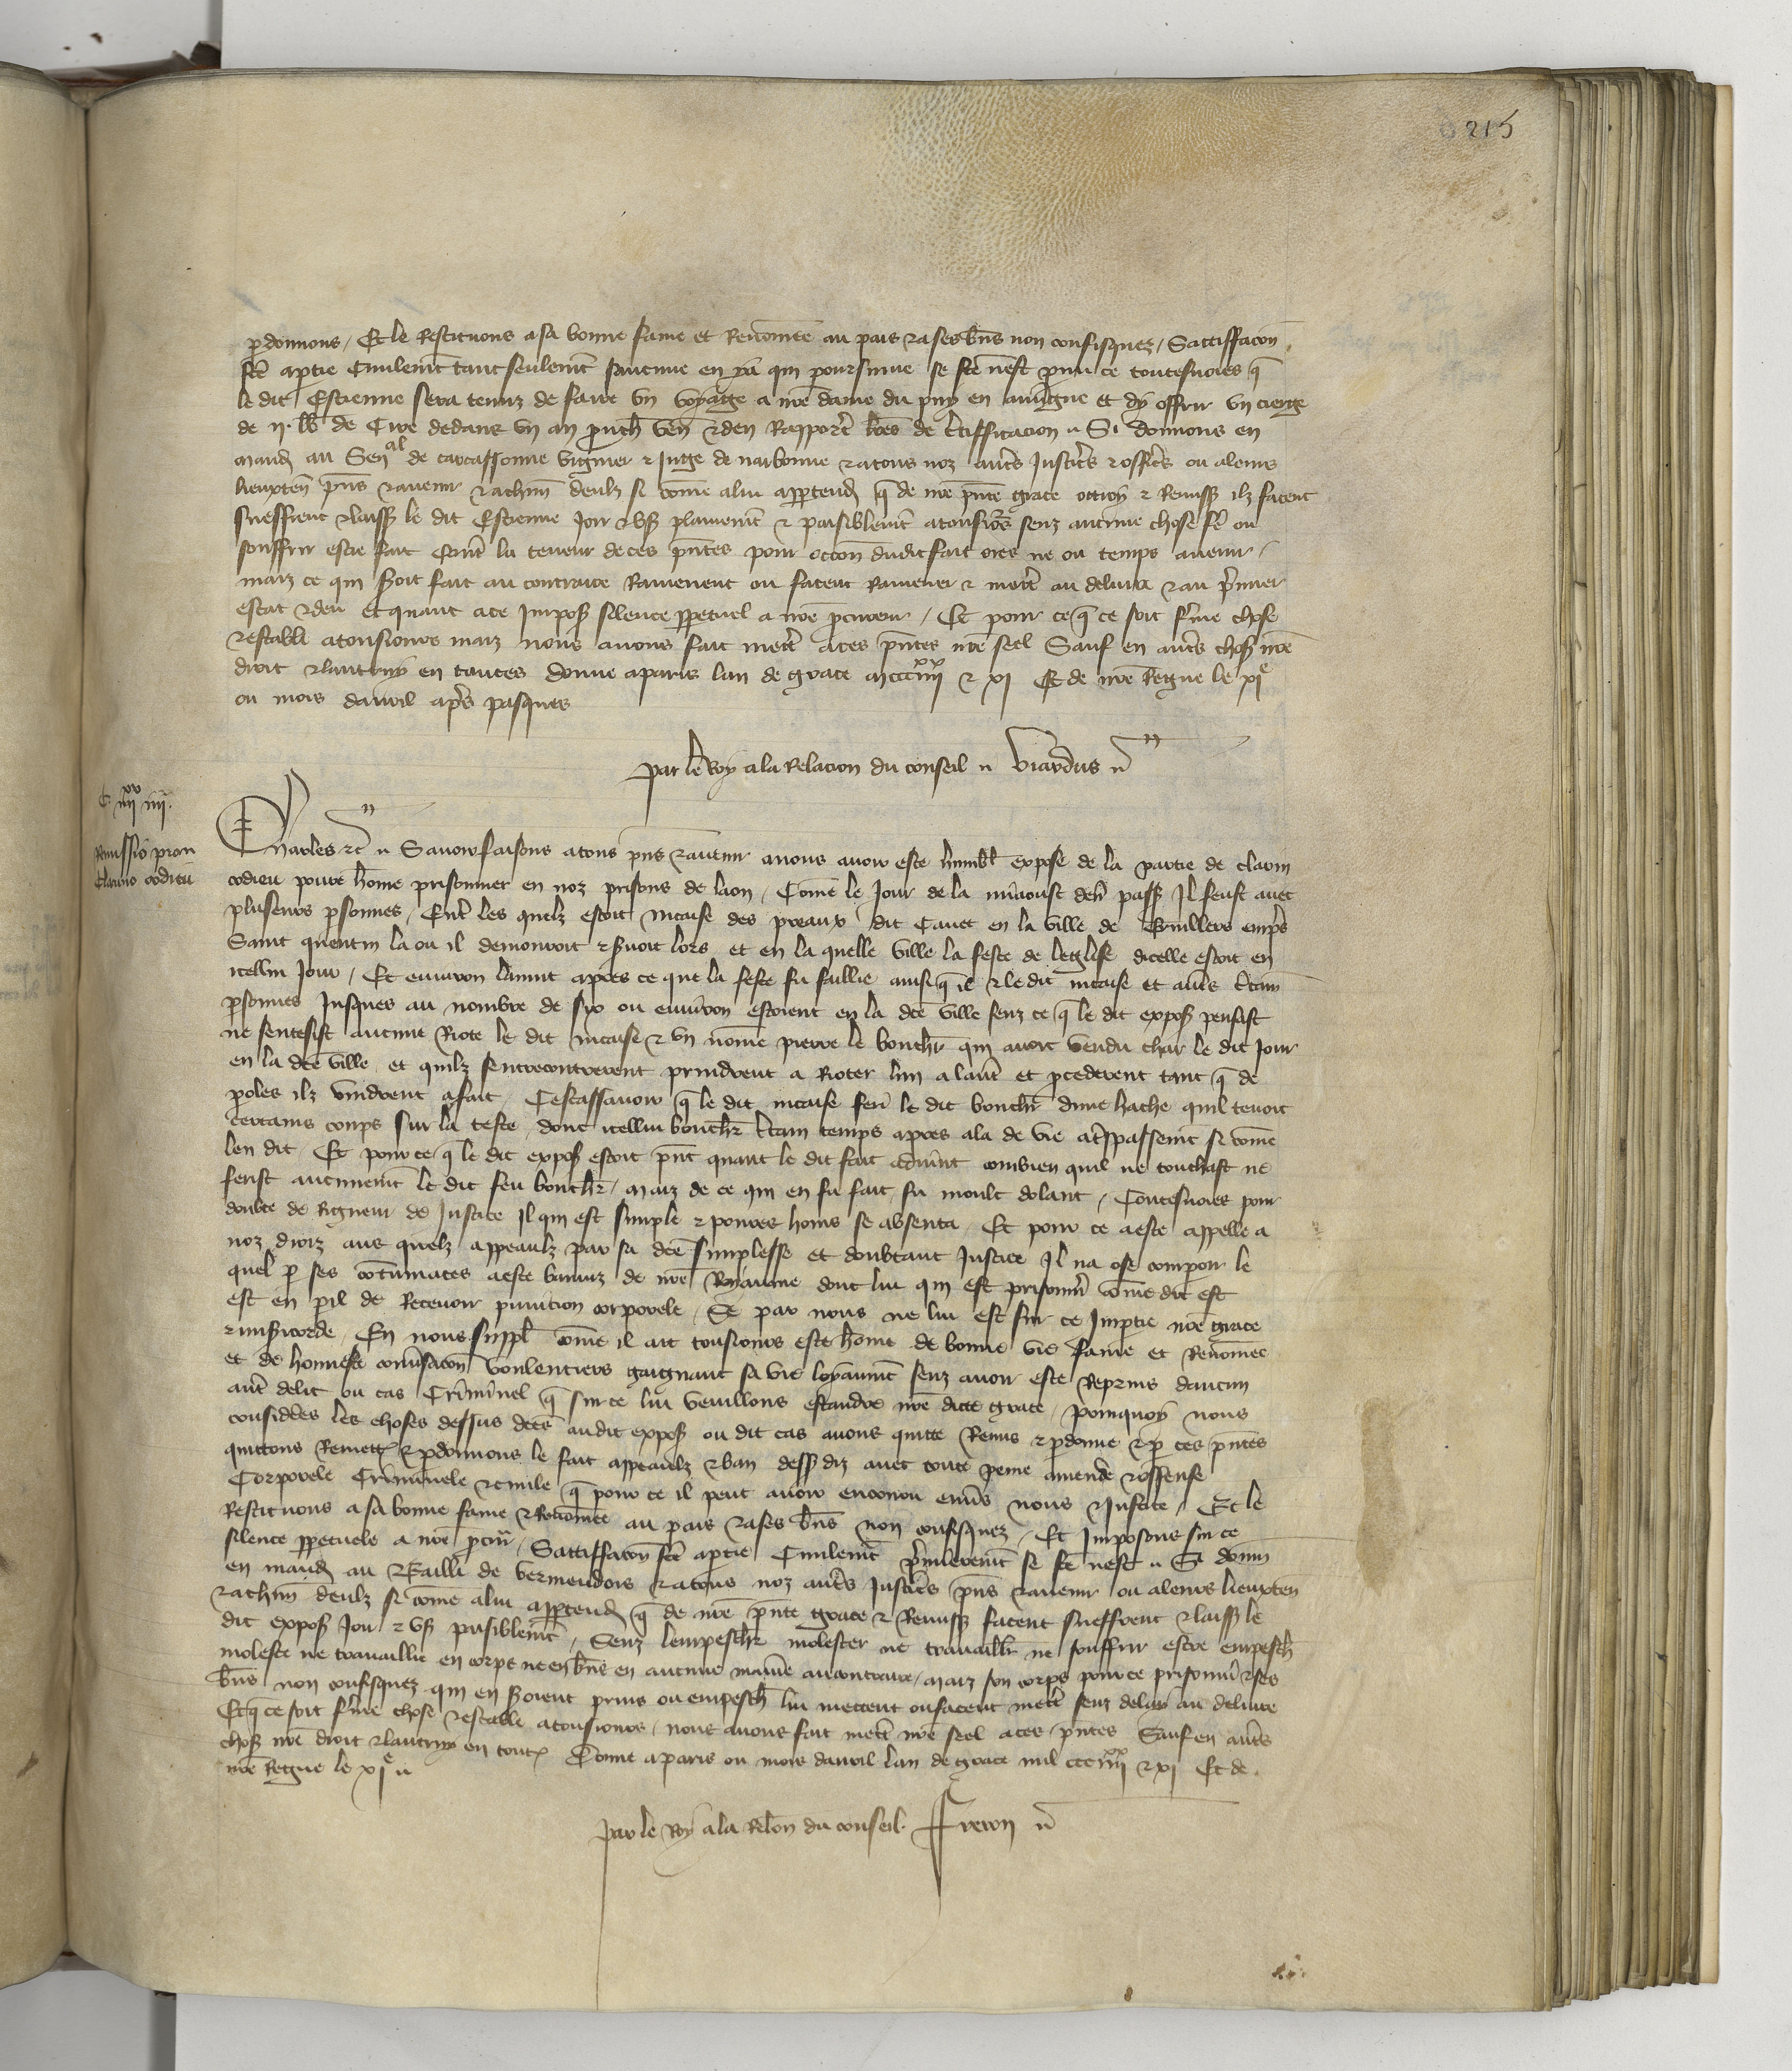 215
pdonnons / Et le Restituons a sa bonne fame et Renomee au pais & a ses biens non confisquez / Sattiffacon
fce a ptie Civilemt tant seulemt saucune en ya qui poursuiue se fce nest pmi ce toutesuoies q
le dit Estienne sera tenuz de faire vn voyatge a nre dame du puy en auuigne et dy offrir vn cierge
de ii. lb de Cire dedans vn an prouch ven & den Rapporter lres de ctifficacion Si donnons en
mand au Senal de carcassonne viguier & Juge de narbonne & a tous noz autres Justiciers & officiers ou a leurs
lieuxten pns & auenir & a chun deulz si come a lui appartend q de nre pnte grace ottroy & Remiss ilz facent
sueffrent & laiss le dit Estienne Joir & vs plainemt & paisiblemt a tousiors senz aucune chose fe ou
souffrir estre fait contre la teneur de ces pntes pour occon dudit fait ores ne ou temps auenir /
maiz ce qui soit fait au contraire Ramenent ou facent Ramener & mettre au deliure & au premier
estat & deu et quant a ce Impos silence ppetuel a nre pcureur / Et pour ce q ce soit ferme chose
& estable a tousiours maiz nous auons fait mettre a ces pntes nre seel Sauf en autres chos nre
droit & lautruy en toutes donne a paris lan de grace mccciiii xx & xi Et de nre Regne le xie
ou mois dauril apres pasques
par le Roy a la Relacion du conseil Viardus
C iiii xx iiii.
Remissio pron
Clarino codieu
Charles &c Sauoir faisons a tous pns & auenir a nous auoir este humbl expose de la partie de clarin
codieu poure home prisonnier en noz prisons de laon / Come le Jour de la miaoust dern pass Il feust auec
pluseurs psonnes / Entre les quelz estoit micaise des preaux dit Cauet en la ville de Truillers empres
Saint quentin la ou il demouroit & seruoit lors et en la quelle ville la feste de leglise dicelle estoit en
icellui Jour / Et enuiron la nuit apres ce que la feste fu faillie ainsi q il & le dit micaise et autres ctain
psonnes Jusques au nombre de six ou enuiron estoient en la dce ville senz ce q le dit expos pensast
ne sentesist aucune Riote le dit micaise & vn nome pierre le bouchr qui auoit vendu char le dit Jour
en la dce ville et quilz sentrecontrerent prindrent a Rioter lun a lautre et pcederent tant q de
poles ilz vindrent a fait / Cest assauoir q le dit micaise feri le dit bouchr dune hache quil tenoit
certains coups sur la teste / dont icellui bouchr ctain temps apres ala de vie a trespassemt si come
len dit / Et pour ce q le dit expos estoit pnt quant le dit fait aduint combien quil ne touchast ne
ferist aucunemt le dit feu bouchr / maiz de ce qui en fu fait fu moult dolant / Toutesuoies pour
doubte de Rigueur de Justice Il qui est simple & poures homs se absenta / Et pour ce a este appelle a
noz droiz aus quelz appeaulz par sa dce simplesse et doubtant Justice Il na ose compoir le
quel p ses cotumaces a este baniz de nre Royaume dont lui qui est prisonnier come dit est
est en pil de Receuoir punicion corporele / Se par nous ne lui est sur ce Imptie nre grace
& misericorde / En nous suppl come il ait tousiours este home de bonne vie fame et Renomee
et de honneste conusacon voulentiers gaignant sa vie loyaumt senz auoir este Reprins daucun
autre delit ou cas Criminel q sur ce lui veuillons estandre nre dicte grace / pourquoy nous
considdes les choses dessus dces audit expos ou dit cas auons quitte Remis & pdonne & p ces pntes
quittons Remettons & pdonnons le fait appeaulz & ban dess diz auec toute peine amende & offense
Corporele Criminele & ciuile q pour ce il peut auoir encouru enuers nous & Justice / Et le
Restituons a sa bonne fame & Renomee au pais & a ses biens non confisquez / Et Imposons sur ce
silence ppetuele a nre pcur / Sattiffacon fce a ptie Civilemt premierement se fce nest Si donn
en mand au Bailli de vermendois & a tous noz autres Justiciers pns & auenir ou a leurs lieuxten
& a chun deulz si come a lui appartend q de nre pnte grace & Remiss facent sueffrent & laiss le
dit expos Joir & vs paisiblemt / Senz lempeschr molester ne trauaillr ne souffrir estre empesch
moleste ne trauaillie en corps ne en biens en aucune maniere au contraire / maiz son corps pour ce prisonnier & ses
biens non confisquez qui en soient prins ou empesch lui mettent ou facent mettre senz delay au deliure
Et q ce soit ferme chose & estable a tousiours / nous auons fait mettre nre seel a ces pntes Sauf en autres
chos nre droit & lautruy en toutes Donne a paris ou mois dauril lan de grace mil ccciiii xx & xi Et de
nre Regne le xie
par le Roy a la Relon du conseil. Freron